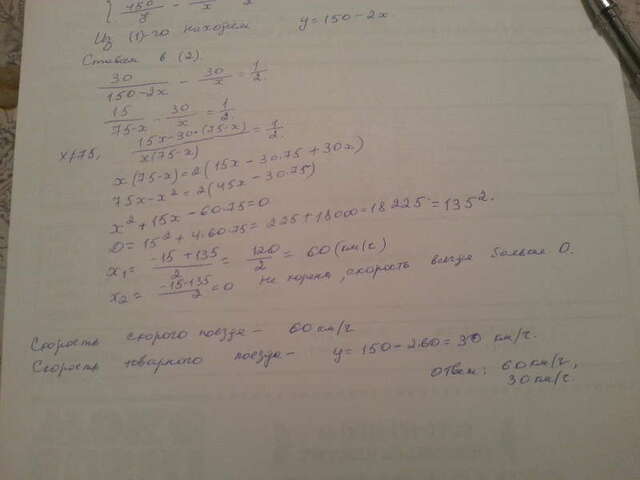 Из (1)-го находим y = 150 - 2x
Ставим в (2).
30/(150-2x) - 30/x = 1/2
15/(75-x) - 30/x = 1/2
x≠75, (15x-30·(75-x))/(x(75-x)) = 1/2
x(75-x) = 2(15x - 30·75 + 30x)
75x - x² = 2(45x - 30·75)
x² + 15x - 60·75 = 0
D = 15² + 4·60·75 = 225 + 18000 = 18225 = 135².
x₁ = (-15+135)/2 = 120/2 = 60 (км/г)
x₂ = (-15-135)/2 = 0 не корень, скорость всегда больше 0.
Скорость скорого поезда - 60 км/г
Скорость товарного поезда - y = 150 - 2·60 = 30 км/г.
Ответ: 60 км/г,
30 км/г.